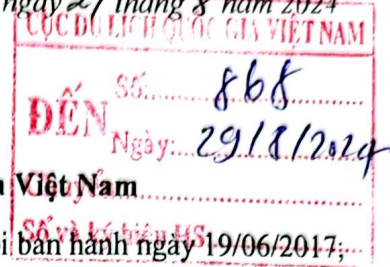 ngày 27 tháng 8 năm 2024
CỤC DU LỊCH QUỐC GIA VIỆT NAM
Số: 868
ĐẾN
Ngày: 29/8/2024
Việt Nam
Số và ký hiệu HS
bản hành ngày 19/06/2017;